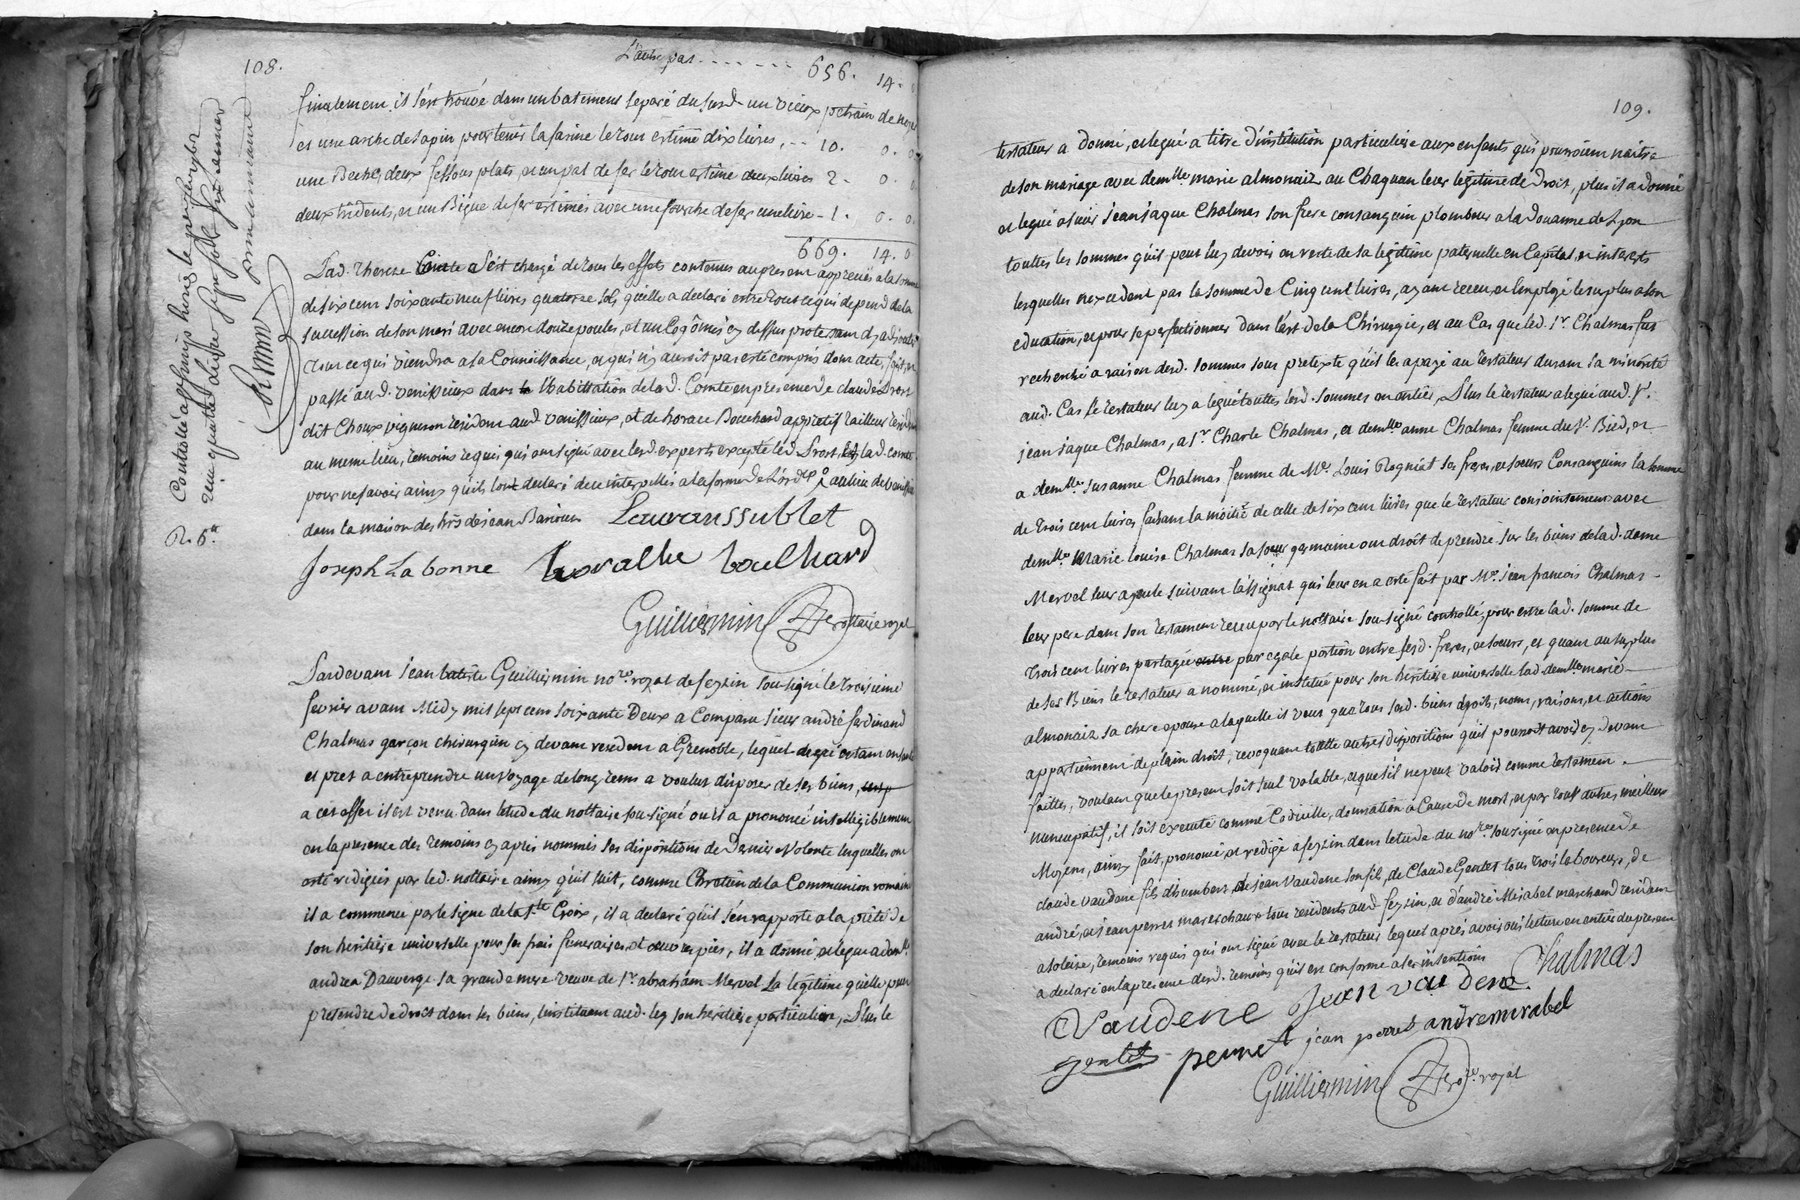 108.
L'autre par . . . . . . 656. 14. 0
finalement, il s'est trouvé dans un batiment separé du sud un vieux petrain de noyer
et une arche de sapin pour tenir la farine le tout estimé dix livres, -- 10. 0. 0.
une Beche, deux fessous plats, et un pal de fer le tout estimé deux livres 2 - 0. 0.
deux tridents, et un Bigue de fer estimés avec une fourche de fer une livre - 1. 0. 0.
669. 14. 0
Lad. Therese Comte a s'est chargé de tous les effets contenus au present appreciés a la somme
de six cent soixante neuf livres quatorze sols, qu'elle a declaré estre tout ce qui depend de la
succession de son mari avec encore douze poules, et un Coq omés cy dessus protestant d'y adjouter
tout ce qui viendra a la Connoissance, et qui n'y auroit pas esté compris dont acte, fait, et
passé aud. venissieux dans l'habittation de lad. Comte en presence de claude Prost
dit Choux vigneron residant aud. venissieux, et de horace Bouchard appretif tailleur resident
au meme lieu, temoins requis qui ont signé avec lesd. experts excepté led. Prost, et lad. comte
pour ne savoir ainsy qu'ils l'ont declaré de ce interpellés a la forme de l'ord.ce
dans la maison des h.rs de jean Barioux Lauranssublet
Joseph Labonne horathe bouchard
Guilliermin no.ttaire royal
Controllé a st simphorien le
reçu quatre livres
R. 6.s
Pardevant jean batiste Guilliermin no.re royal de feyzin sousigné le troisieme
fevrier avant Midy mil sept cent soixante Deux a Comparu sieur andré ferdinand
Chalmas garçon chirurgien cy devant resident a Grenoble, lequel de gré estant en santé
et prest a entreprendre un voyage de long tems a voulut disposer de ses biens,
a cet effet il est venu dans letude du nottaire sousigné ou il a prononcé intelligiblement
en la presence des temoins cy apres nommés ses dispositions de Derniere Volonté lesquelles ont
esté redigées par led. nottaire ainsy quil suit, comme Chretien de la Communion romaine
il a commencé par le signe de la S.te Croix, il a declaré qu'il s'en rapporte a la pieté de
son heritiere universelle pour ses frais funeraires, et oeuvres pies, il a donné, et legué a dem.lle
andréa Dauverge sa grande mere veuve de S.r abraham Mervel La legitime qu'elle peut
pretendre de droit dans ses biens, l'instituant aud. leg son héritiere particuliere, Plus le
109.
testateur a donné, et legué a titre d'institution particuliere aux enfants qui pourroient naitre
de son mariage avec dem.lle marie almonair au Chaquun leur legitime de droit, plus il a donné
et legué a sieur jean jaque Chalmas son frere consanguin plombeur a la douanne de Lyon
touttes les sommes qu'il peut luy devoir en reste de sa legitime paternelle en Capital, et interets
lesquelles n'excedent pas la somme de Cinq cent livres, ayant receu, et employé le surplus a son
education, et pour se perfectionner dans l'art de la Chirurgie, et au Cas que led. S.r Chalmas fut
recherché a raison desd. sommes sous pretexte qu'il les a payé au testateur durant sa minorité
aud. Cas le testateur luy a legué touttes lesd. sommes en entier. Plus le testateur a legué aud. S.r
jean jaque Chalmas, a S.r Charle Chalmas, et dem.lle anne Chalmas femme du S.r Bied, et
a dem.lle susanne Chalmas femme de M.e Louis Rogniat ses freres, et soeurs Consanguins la somme
de trois cent livres faisant la moitié de celle de six cent livres que le testateur conjointement avec
dem.lle Marie louise Chalmas sa soeur germaine ont droit de prendre sur les biens de lad. dame
Mervel leur ayeule suivant l'assignat qui leur en a esté fait par M.e jean francois Chalmas
leur pere dans son testament receu par le nottaire sousigné controllé, pour estre lad. somme de
trois cent livres partagée par egale portion entre sesd. freres, et soeurs, et quant au surplus
de ses Biens le testateur a nommé, et institué pour son héritiere universelle lad. dem.lle marie
almonair sa chere epouse a laquelle il veut que tous sesd. biens droits, noms, raisons, et actions
appartiennent de plain droit, revoquant toutte autres dispositions qu'il pourroit avoir cy devant
faittes, voulant que le present soit seul valable, et que s'il ne peut valoir comme testament
nuncupatif, il soit executé comme Codicille, donnation a Cause de mort, et par tout autres meilleurs
Moyens, ainsy fait, prononcé, et redigé a feyzin dans letude du no.re sousigné en presence de
claude vaudene fils d'humbert, de jean Vaudene son fil, de Claude Gentet tous trois laboureurs, de
andré, et jean perret mareschaux tous residents aud. feyzin, et d'andré Mirabel marchand resident
a soleize, temoins requis qui ont signé avec le testateur lequel aprés avoir oüi lecture en entier du present
a declaré en la presence desd. temoins qu'il est conforme a ses intentions Chalmas
Vaudene Jean vaudene
gentet perret jean perret andre mirabel
Guilliermin no.re royal